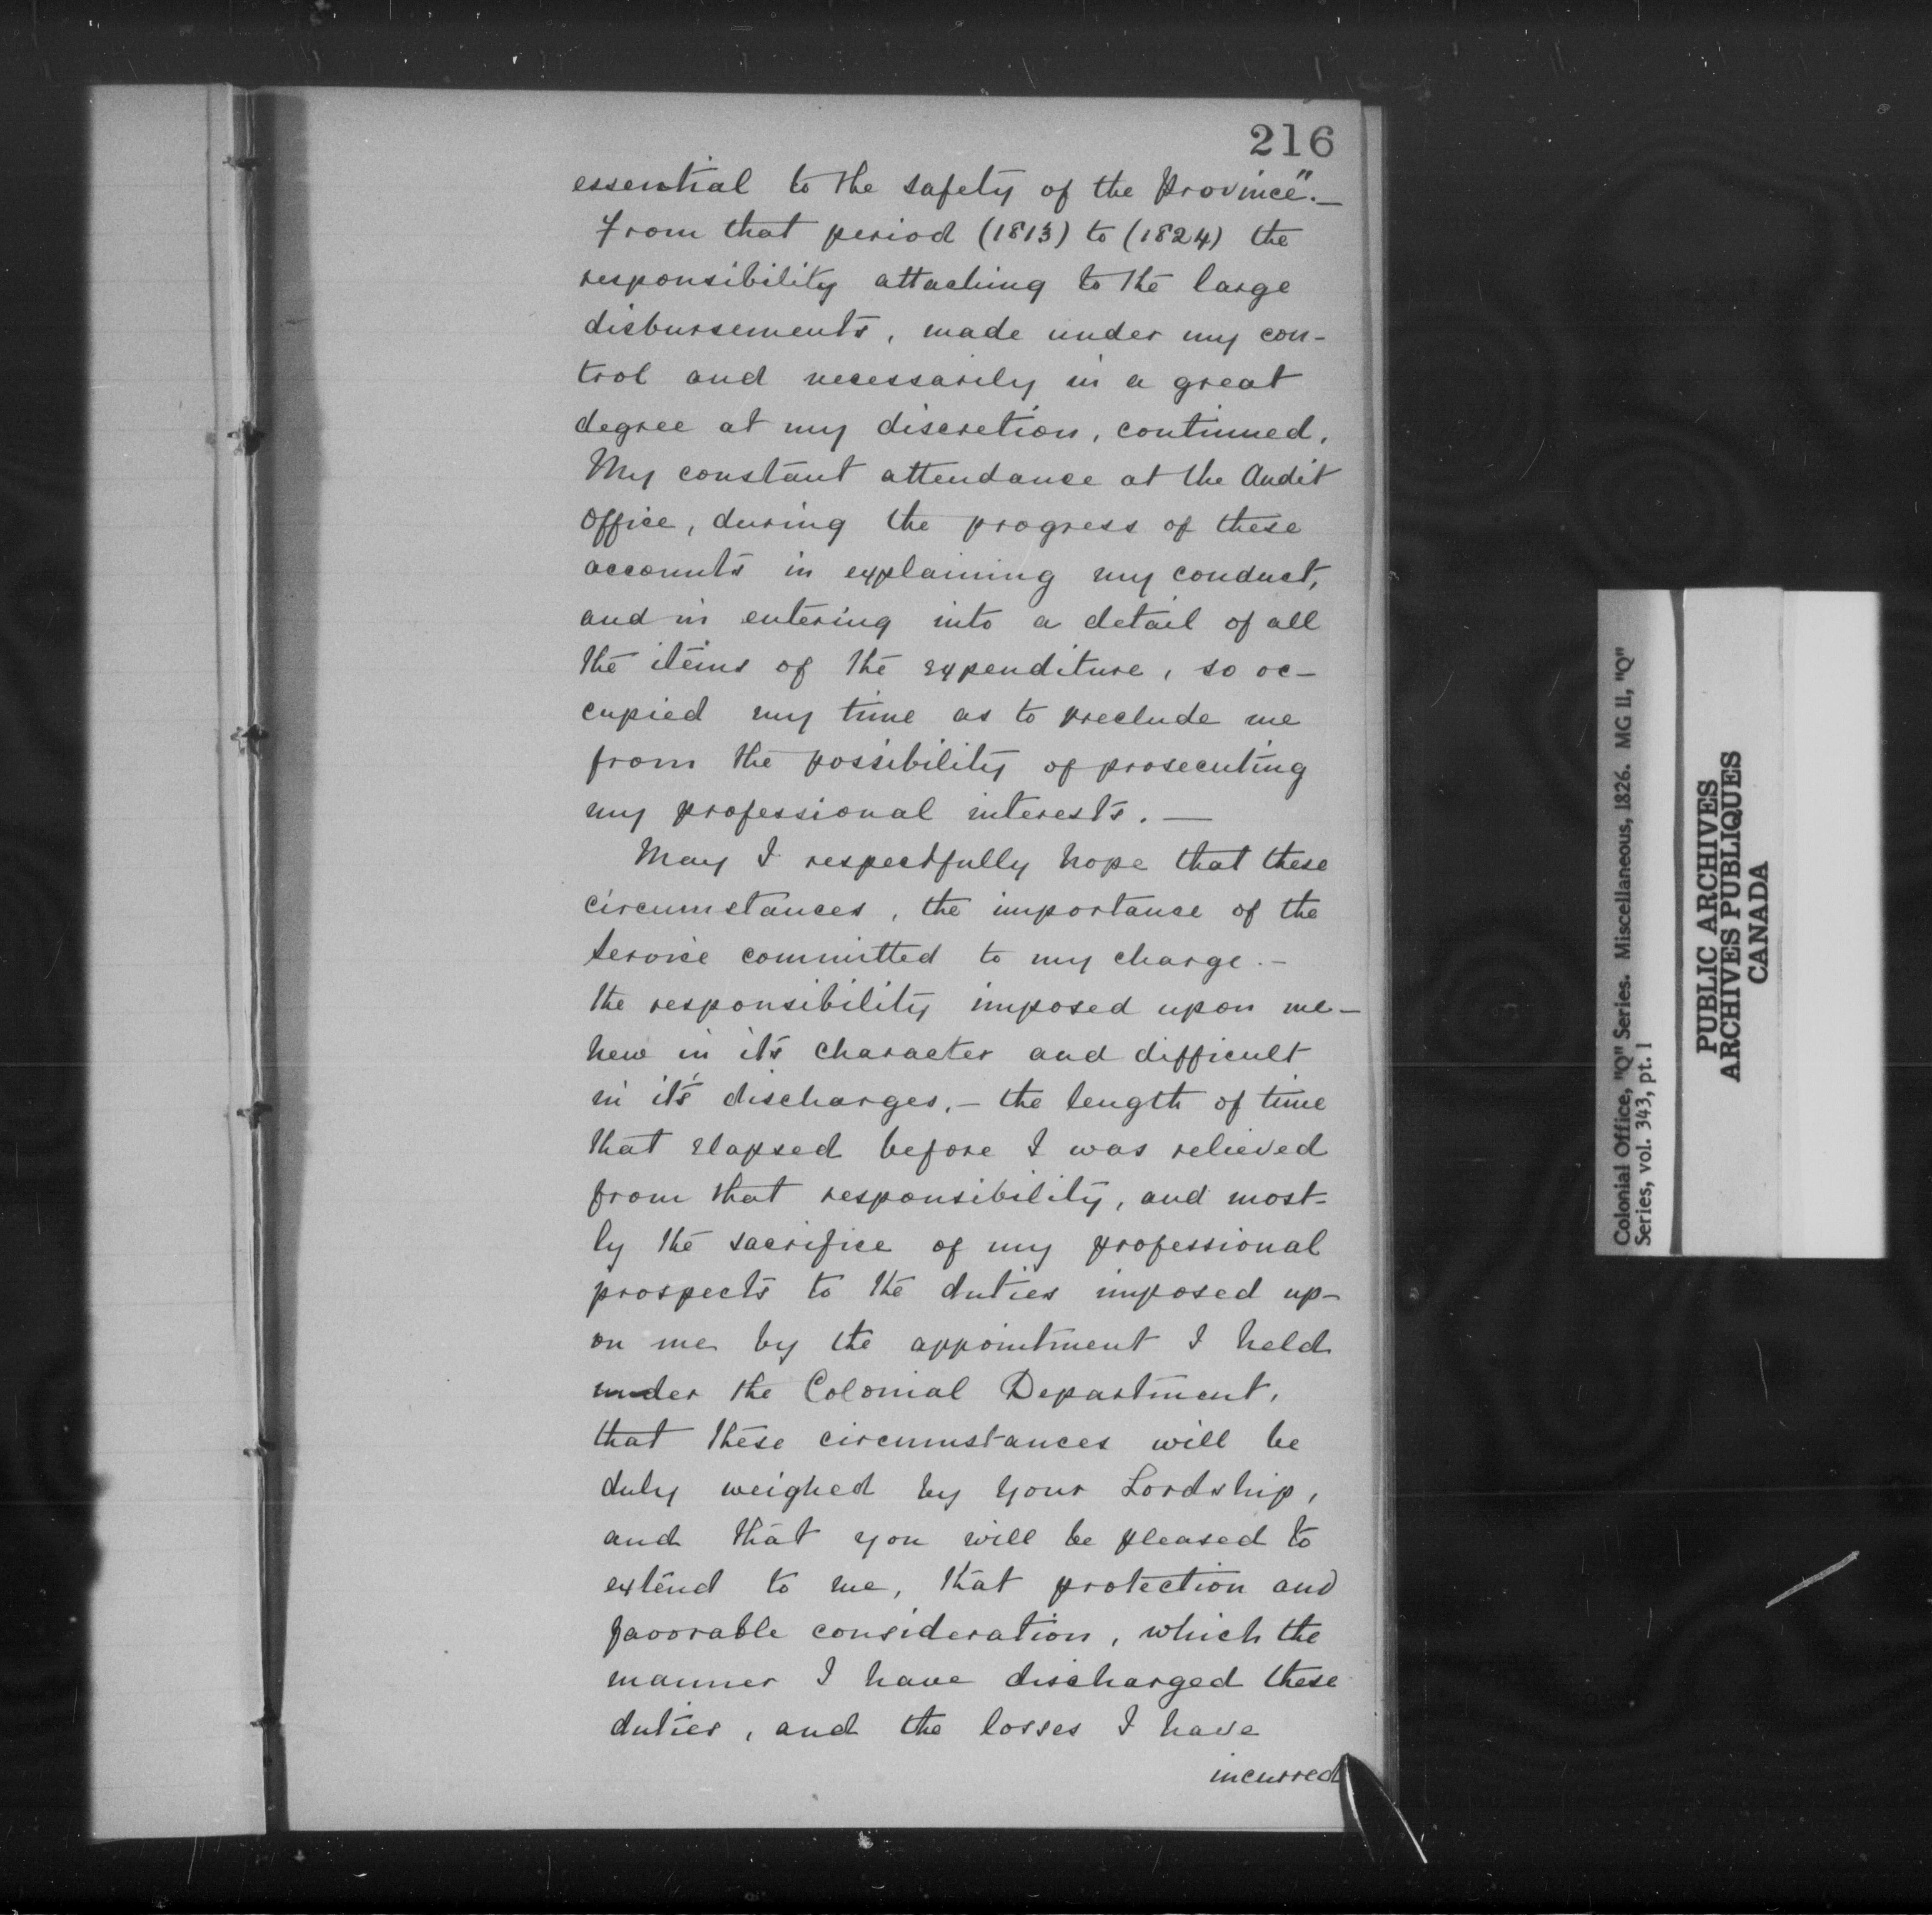 216
essential to the safety of the province".—
From that period (1813) to (1824) the
responsibility attaching to the large
disbursements, made under my con-
trol and necessarily in a great
degree at my discretion, continued.
My constant attendance at the Audit
Office, during the progress of these
accounts in explaining my conduct,
and in entering into a detail of all
the items of the expenditure, so oc-
cupied my time as to preclude me
from the possibility of prosecuting
my professional interests. —
May I respectfully hope that these
circumstances, the importance of the
service committed to my charge.—
the responsibility imposed upon me—
new in it's character and difficult
in it's discharges,— the length of time
that elapsed before I was relieved
from that responsibility, and most-
ly the sacrifice of my professional
prospects to the duties imposed up-
on me by the appointment I held
under the Colonial Department,
that these circumstances will be
duly weighed by your Lordship,
and that you will be pleased to
extend to me, that protection and
favorable consideration, which the
manner I have discharged these
duties, and the losses I have
incurred
Colonial Office, "Q" Series. Miscellaneous, 1826. MG 11, "Q"
Series, vol. 343, pt. 1
PUBLIC ARCHIVES
ARCHIVES PUBLIQUES
CANADA